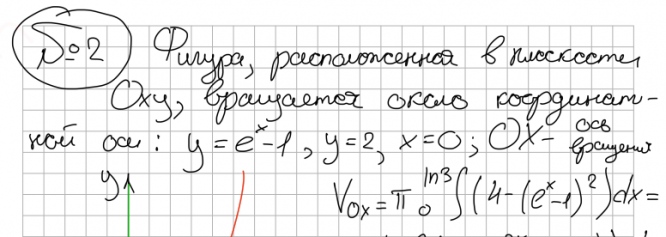 №2 Фигура, расположенная в плоскости
Оху, вращается около координат-
ной оси: y = eˣ-1, y=2, x=0; OX - ось вращения
y
V_OX = π ₀^ln3 ∫(4-(eˣ-1)²)dx =